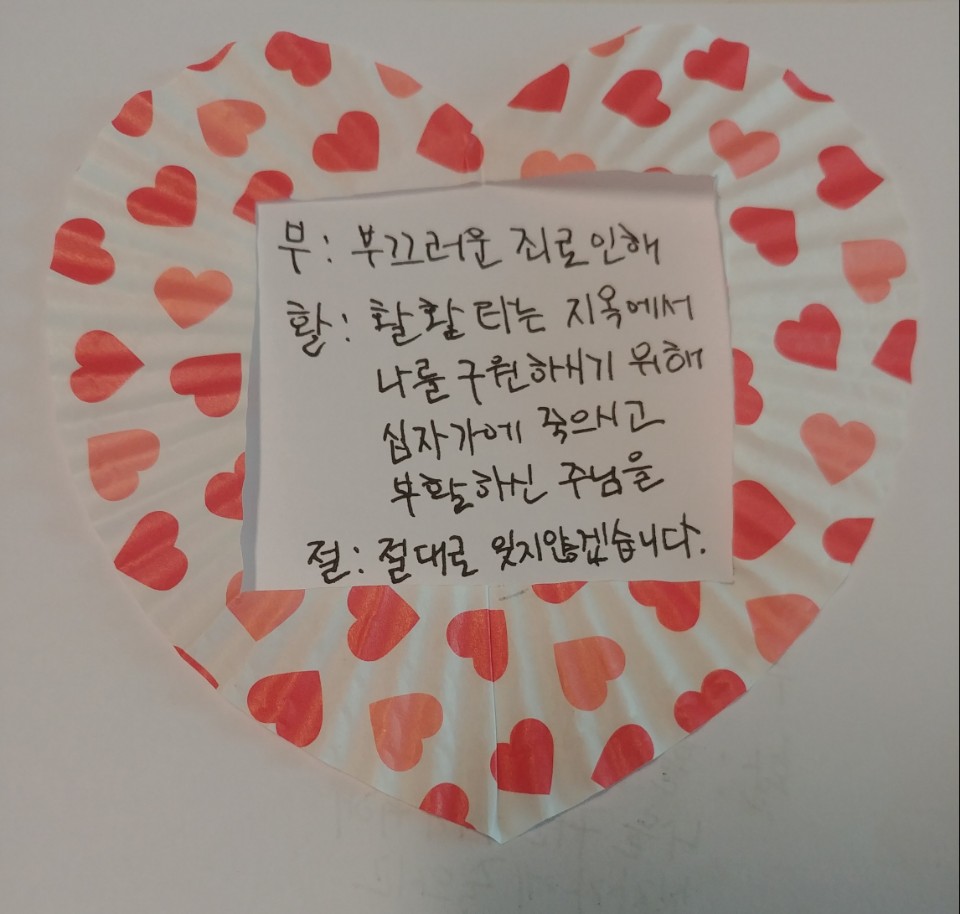 부: 부끄러운 죄로인해
활: 활활 타는 지옥에서
나를 구원하시기 위해
십자가에 죽으시고
부활하신 주님을
절: 절대로 잊지않겠습니다.